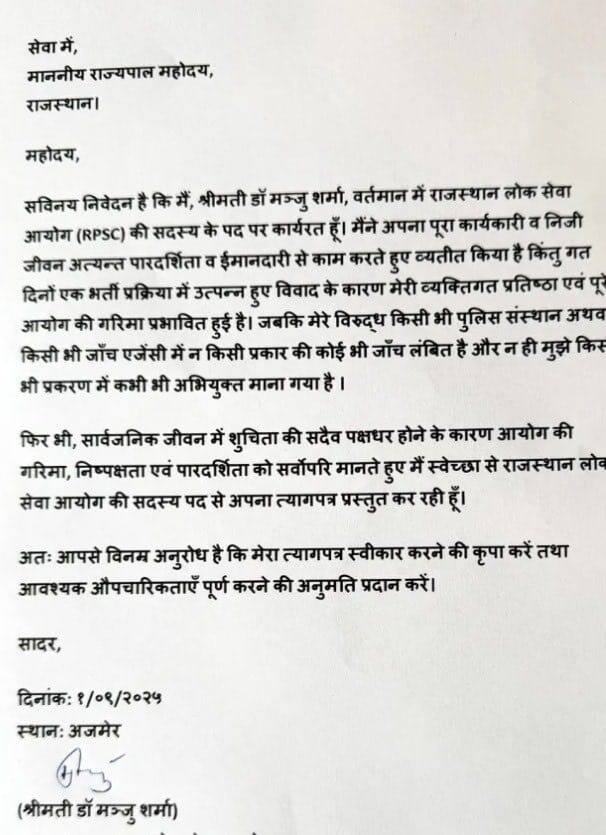 सेवा में,
माननीय राज्यपाल महोदय,
राजस्थान।
महोदय,
सविनय निवेदन है कि मैं, श्रीमती डॉ मञ्जु शर्मा, वर्तमान में राजस्थान लोक सेवा
आयोग (RPSC) की सदस्य के पद पर कार्यरत हूँ। मैंने अपना पूरा कार्यकारी व निजी
जीवन अत्यन्त पारदर्शिता व ईमानदारी से काम करते हुए व्यतीत किया है किंतु गत
दिनों एक भर्ती प्रक्रिया में उत्पन्न हुए विवाद के कारण मेरी व्यक्तिगत प्रतिष्ठा एवं पूरे
आयोग की गरिमा प्रभावित हुई है। जबकि मेरे विरुद्ध किसी भी पुलिस संस्थान अथव
किसी भी जाँच एजेंसी में न किसी प्रकार की कोई भी जाँच लंबित है और न ही मुझे किस
भी प्रकरण में कभी भी अभियुक्त माना गया है ।
फिर भी, सार्वजनिक जीवन में शुचिता की सदैव पक्षधर होने के कारण आयोग की
गरिमा, निष्पक्षता एवं पारदर्शिता को सर्वोपरि मानते हुए मैं स्वेच्छा से राजस्थान लोक
सेवा आयोग की सदस्य पद से अपना त्यागपत्र प्रस्तुत कर रही हूँ।
अतः आपसे विनम्र अनुरोध है कि मेरा त्यागपत्र स्वीकार करने की कृपा करें तथा
आवश्यक औपचारिकताएँ पूर्ण करने की अनुमति प्रदान करें।
सादर,
दिनांक: १/०९/२०२५
स्थान: अजमेर
(श्रीमती डॉ मञ्जु शर्मा)